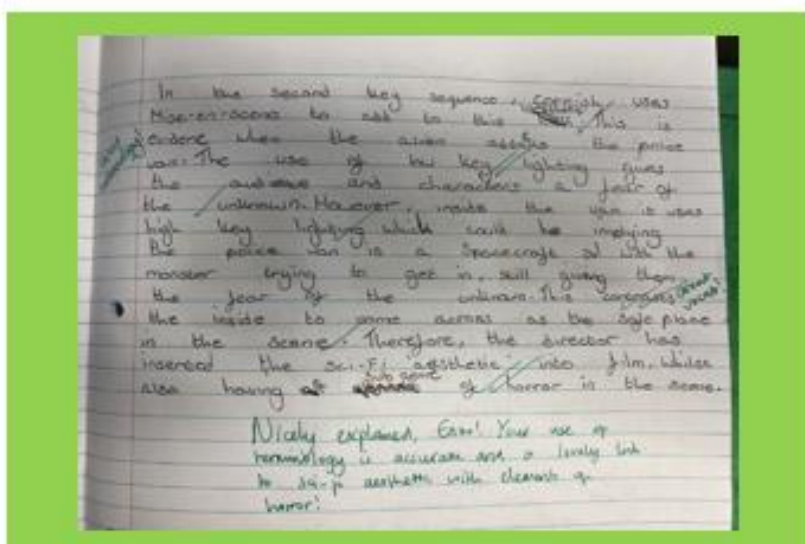 In the second key sequence, Cornish, uses
Mise-en-scene to add to this. This is
evidence when the alien attacks the police
van. The use of low key lighting gives
the audience and characters a fear of
the unknown. However, inside the van it uses
high key lighting which could be implying
the police van is a Spacecraft with the
monster trying to get in, still giving them
the fear of the unknown. This
the inside to come across as the safe place
in the scene. Therefore, the director has
inserted the sci-fi aesthetic into film, whilst
also having sub genre of horror in the scene.
Nicely explained, Your use of
terminology is accurate and a lovely link
to sci-fi aesthetic with elements of
horror!